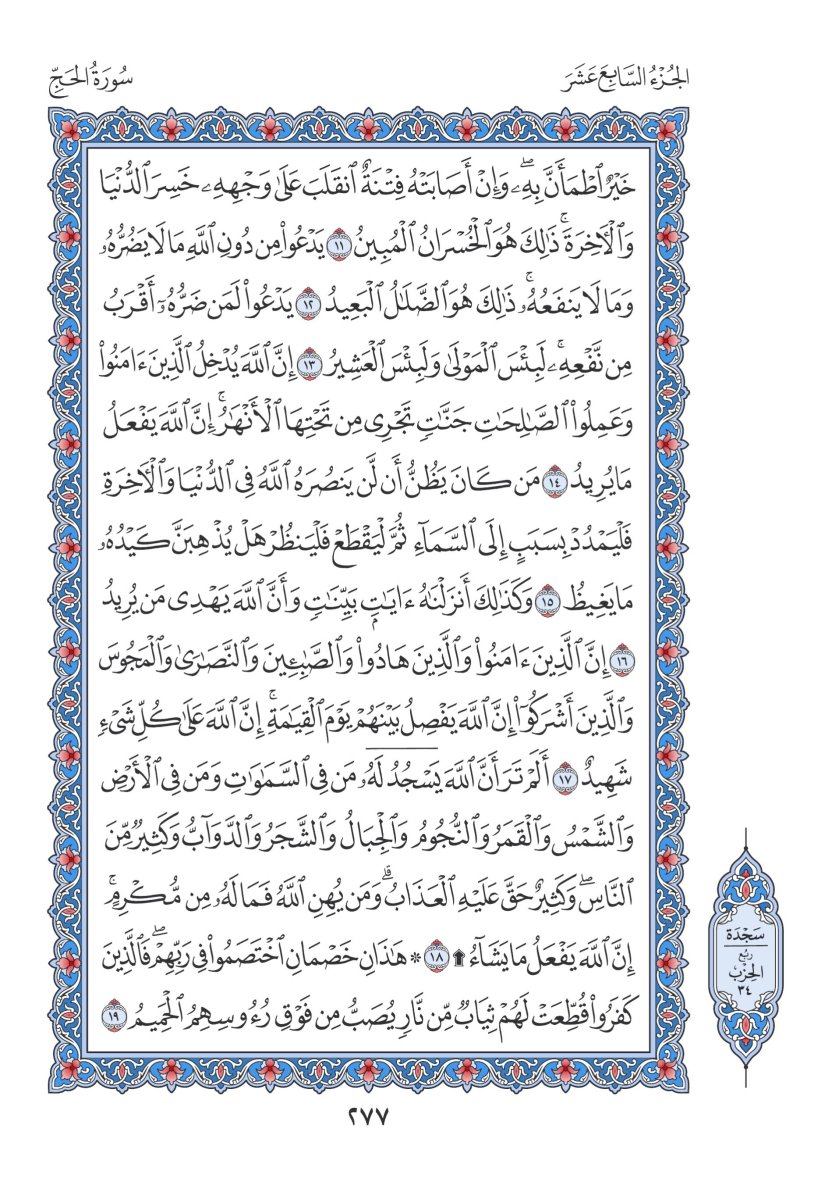 الجُزْءُ السَّابِعَ عَشَرَ
سُورَةُ الحَجِّ
خَيْرٌ ٱطْمَأَنَّ بِهِۦۖ وَإِنْ أَصَابَتْهُ فِتْنَةٌ ٱنقَلَبَ عَلَىٰ وَجْهِهِۦ خَسِرَ ٱلدُّنْيَا
وَٱلْأَخِرَةَۚ ذَٰلِكَ هُوَ ٱلْخُسْرَانُ ٱلْمُبِينُ ١١ يَدْعُواْ مِن دُونِ ٱللَّهِ مَا لَا يَضُرُّهُۥ
وَمَا لَا يَنفَعُهُۥۚ ذَٰلِكَ هُوَ ٱلضَّلَٰلُ ٱلْبَعِيدُ ١٢ يَدْعُواْ لَمَن ضَرُّهُۥٓ أَقْرَبُ
مِن نَّفْعِهِۦۚ لَبِئْسَ ٱلْمَوْلَىٰ وَلَبِئْسَ ٱلْعَشِيرُ ١٣ إِنَّ ٱللَّهَ يُدْخِلُ ٱلَّذِينَ ءَامَنُواْ
وَعَمِلُواْ ٱلصَّٰلِحَٰتِ جَنَّٰتٍ تَجْرِى مِن تَحْتِهَا ٱلْأَنْهَٰرُۚ إِنَّ ٱللَّهَ يَفْعَلُ
مَا يُرِيدُ ١٤ مَن كَانَ يَظُنُّ أَن لَّن يَنصُرَهُ ٱللَّهُ فِى ٱلدُّنْيَا وَٱلْأَخِرَةِ
فَلْيَمْدُدْ بِسَبَبٍ إِلَى ٱلسَّمَآءِ ثُمَّ لْيَقْطَعْ فَلْيَنظُرْ هَلْ يُذْهِبَنَّ كَيْدُهُۥ
مَا يَغِيظُ ١٥ وَكَذَٰلِكَ أَنزَلْنَٰهُ ءَايَٰتٍۭ بَيِّنَٰتٍ وَأَنَّ ٱللَّهَ يَهْدِى مَن يُرِيدُ
١٦ إِنَّ ٱلَّذِينَ ءَامَنُواْ وَٱلَّذِينَ هَادُواْ وَٱلصَّٰبِـِٔينَ وَٱلنَّصَٰرَىٰ وَٱلْمَجُوسَ
وَٱلَّذِينَ أَشْرَكُوٓاْ إِنَّ ٱللَّهَ يَفْصِلُ بَيْنَهُمْ يَوْمَ ٱلْقِيَٰمَةِۚ إِنَّ ٱللَّهَ عَلَىٰ كُلِّ شَىْءٍ
شَهِيدٌ ١٧ أَلَمْ تَرَ أَنَّ ٱللَّهَ يَسْجُدُ لَهُۥ مَن فِى ٱلسَّمَٰوَٰتِ وَمَن فِى ٱلْأَرْضِ
وَٱلشَّمْسُ وَٱلْقَمَرُ وَٱلنُّجُومُ وَٱلْجِبَالُ وَٱلشَّجَرُ وَٱلدَّوَآبُّ وَكَثِيرٌ مِّنَ
ٱلنَّاسِۖ وَكَثِيرٌ حَقَّ عَلَيْهِ ٱلْعَذَابُۗ وَمَن يُهِنِ ٱللَّهُ فَمَا لَهُۥ مِن مُّكْرِمٍۚ
إِنَّ ٱللَّهَ يَفْعَلُ مَا يَشَآءُ ۩ ١٨ * هَٰذَانِ خَصْمَانِ ٱخْتَصَمُواْ فِى رَبِّهِمْۖ فَٱلَّذِينَ
كَفَرُواْ قُطِّعَتْ لَهُمْ ثِيَابٌ مِّن نَّارٍ يُصَبُّ مِن فَوْقِ رُءُوسِهِمُ ٱلْحَمِيمُ ١٩
سَجْدَة
رُبُع
الحِزْب
٣٤
٢٧٧